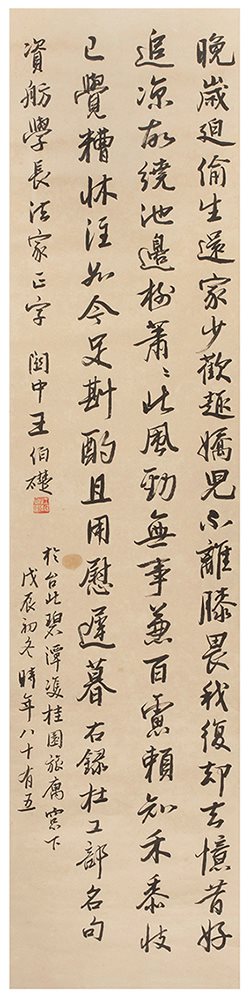 晚歲迫偷生還家少歡趣嬌兒不離膝畏我復却去憶昔好
追涼故繞池邊樹蕭〻北風勁無事兼百慮賴知禾黍收
已覺糟牀注如今足斟酌且用慰遲暮右錄杜工部名句
資舫學長法家正字 閩中王伯礎
於台北碧潭桂園旅寓窓下
戊辰初冬時年八十有五